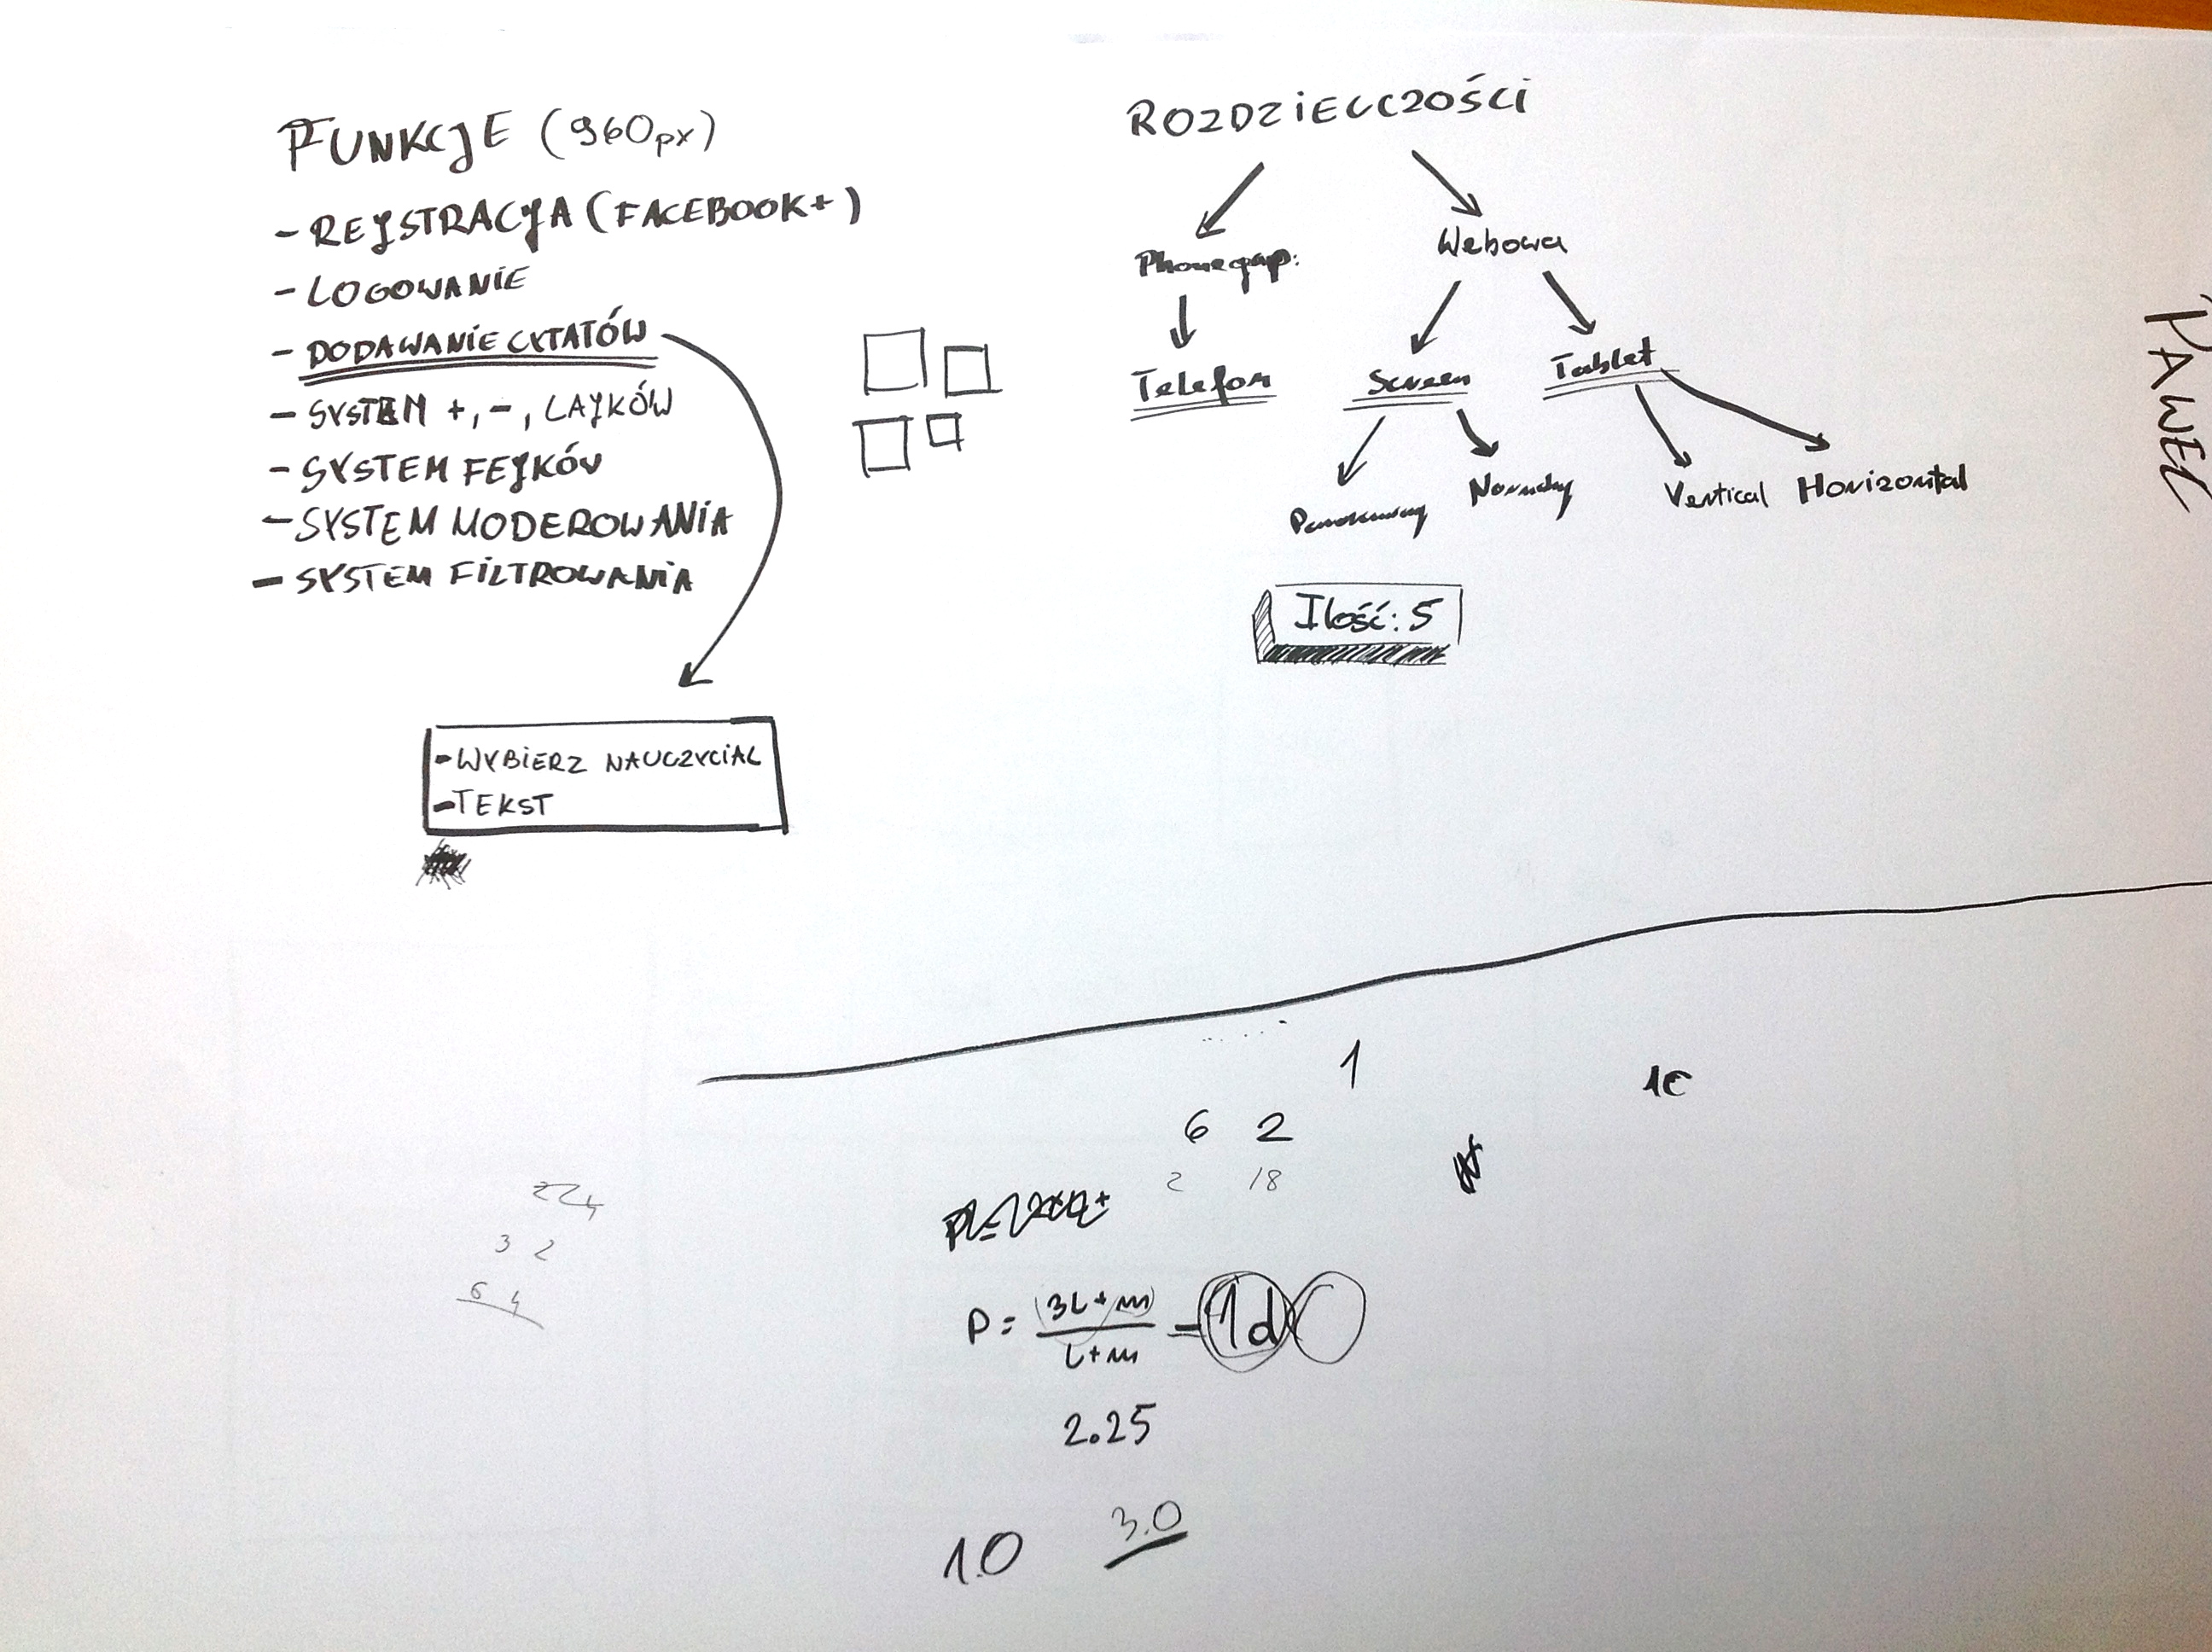 FUNKCJE (960px)
- REJSTRACJA (FACEBOOK+)
- LOGOWANIE
- DODAWANIE CYTATÓW
- SYSTEM +, -, LAJKÓW
- SYSTEM FEJKÓW
- SYSTEM MODEROWANIA
- SYSTEM FILTROWANIA
- WYBIERZ NAUCZYCIAL
- TEKST
ROZDZIELCZOŚCI
Phonegap:
Webowa
Telefon
Screen
Tablet
Panoramowy
Normalny
Vertical
Horizontal
Ilość: 5
PAWEŁ
1
6 2
2 18
3 2
6 4
P = (3L+m)
L+m
- 1d
2.25
1.0
3.0